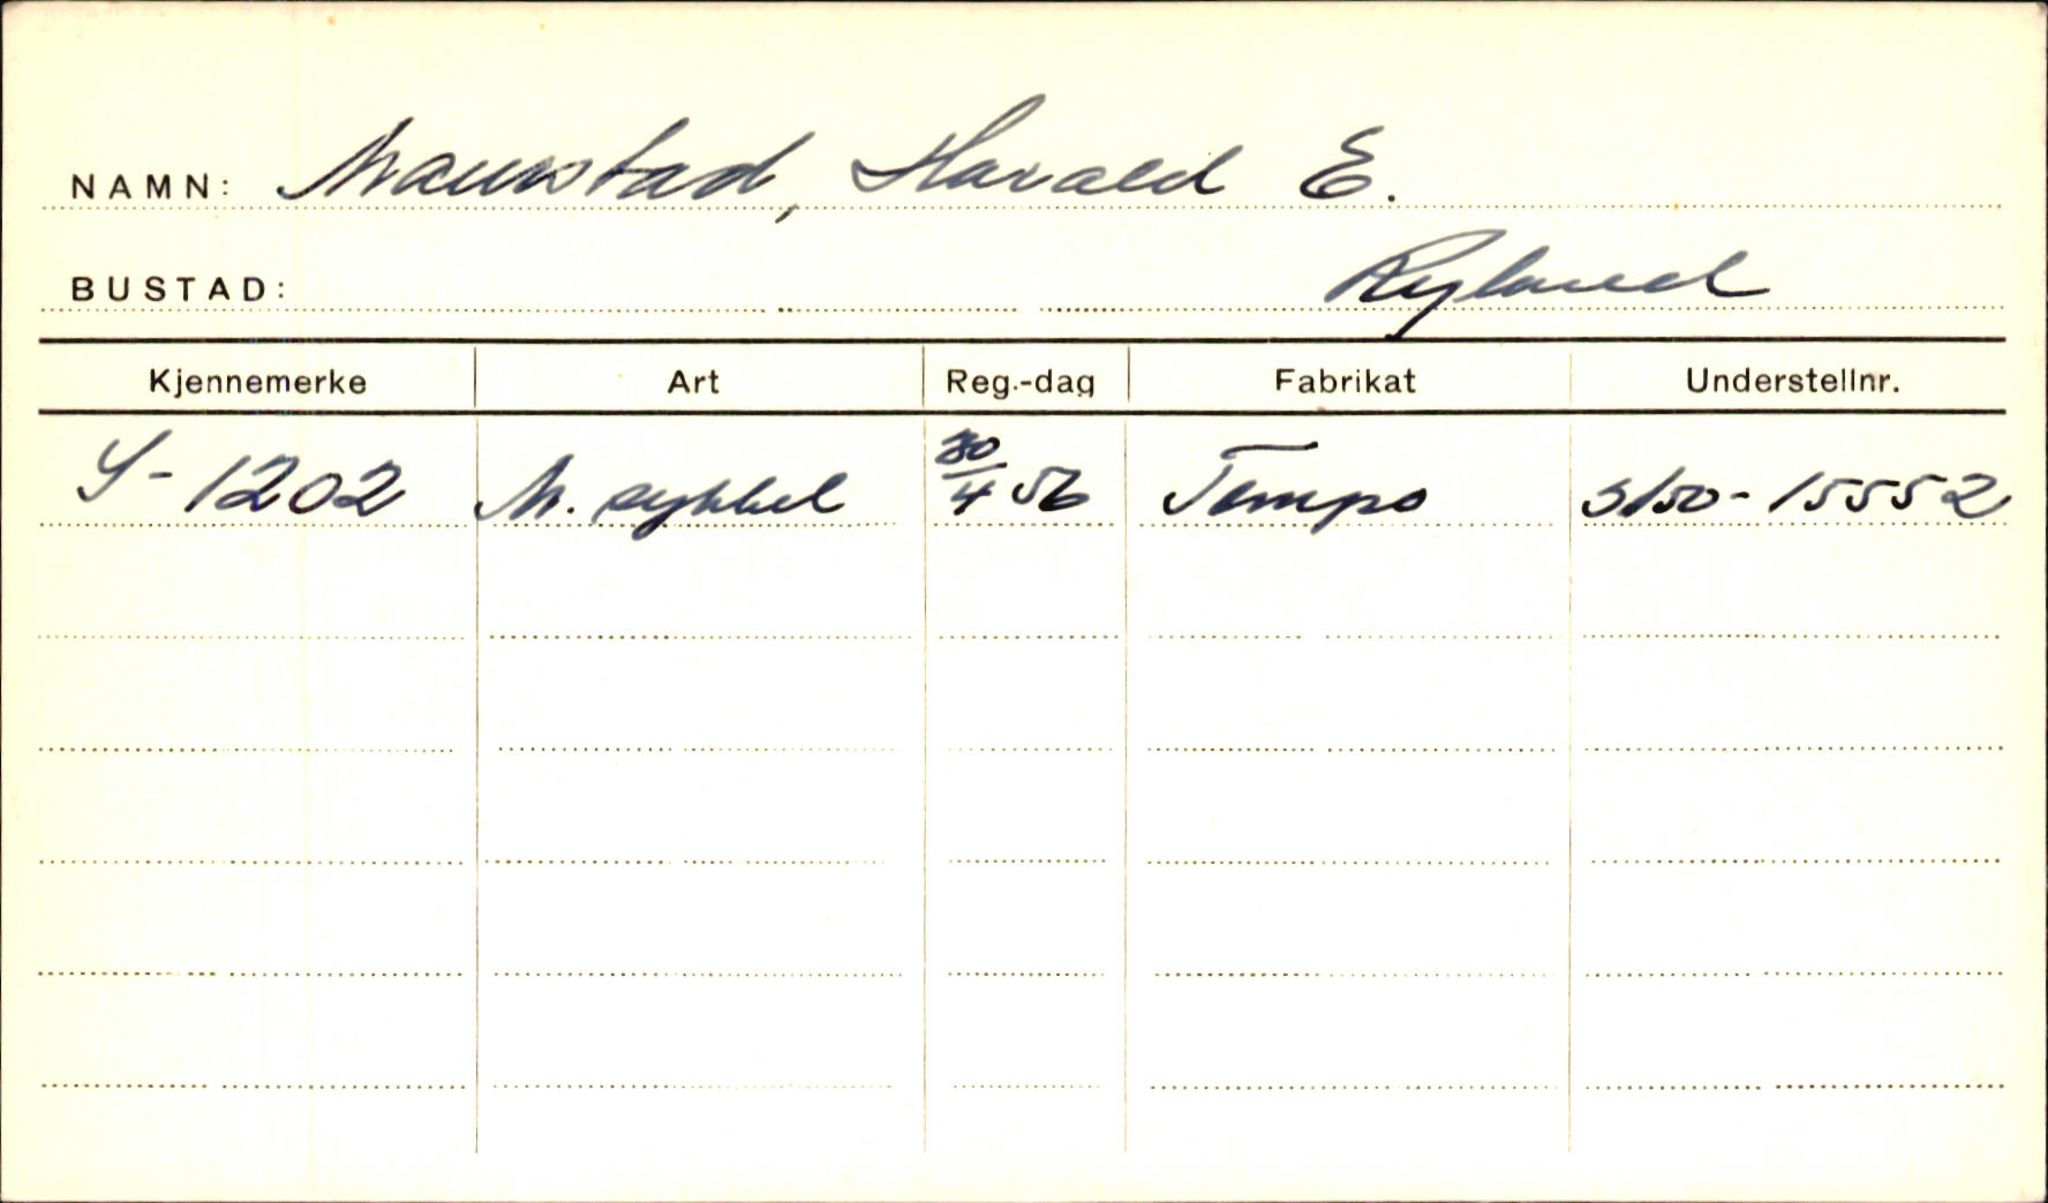 NAMN: Maurstad, Harald E.
BUSTAD: Ryland
Kjennemerke Art Reg.-dag Fabrikat Understellnr.
S-1202 M. sykkel 30/4 56 Tempo S150-15552